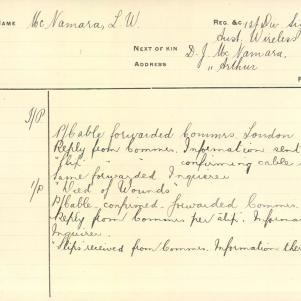 NAME Mc Namara, L. W. REG. &C. 1st Div. Si
Aust. Wireless
NEXT OF KIN D. J. Mc Namara.
ADDRESS " Arthur
S/P
P/Cable forwarded Commrs. London
Reply from Commrs. Information sent
"Slip" " confirming cable
Same forwarded Inquirer
1/P "Died of Wounds"
P/Cable confirmed forwarded Commrs.
Reply from Commrs per slip. Informa
Inquirer.
"Slips received from Commrs. Information the